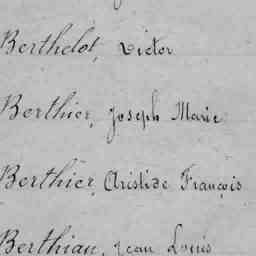 Berthelot, Victor
Berthier, Joseph Marie
Berthier, Aristide François
Berthiau, Jean Louis